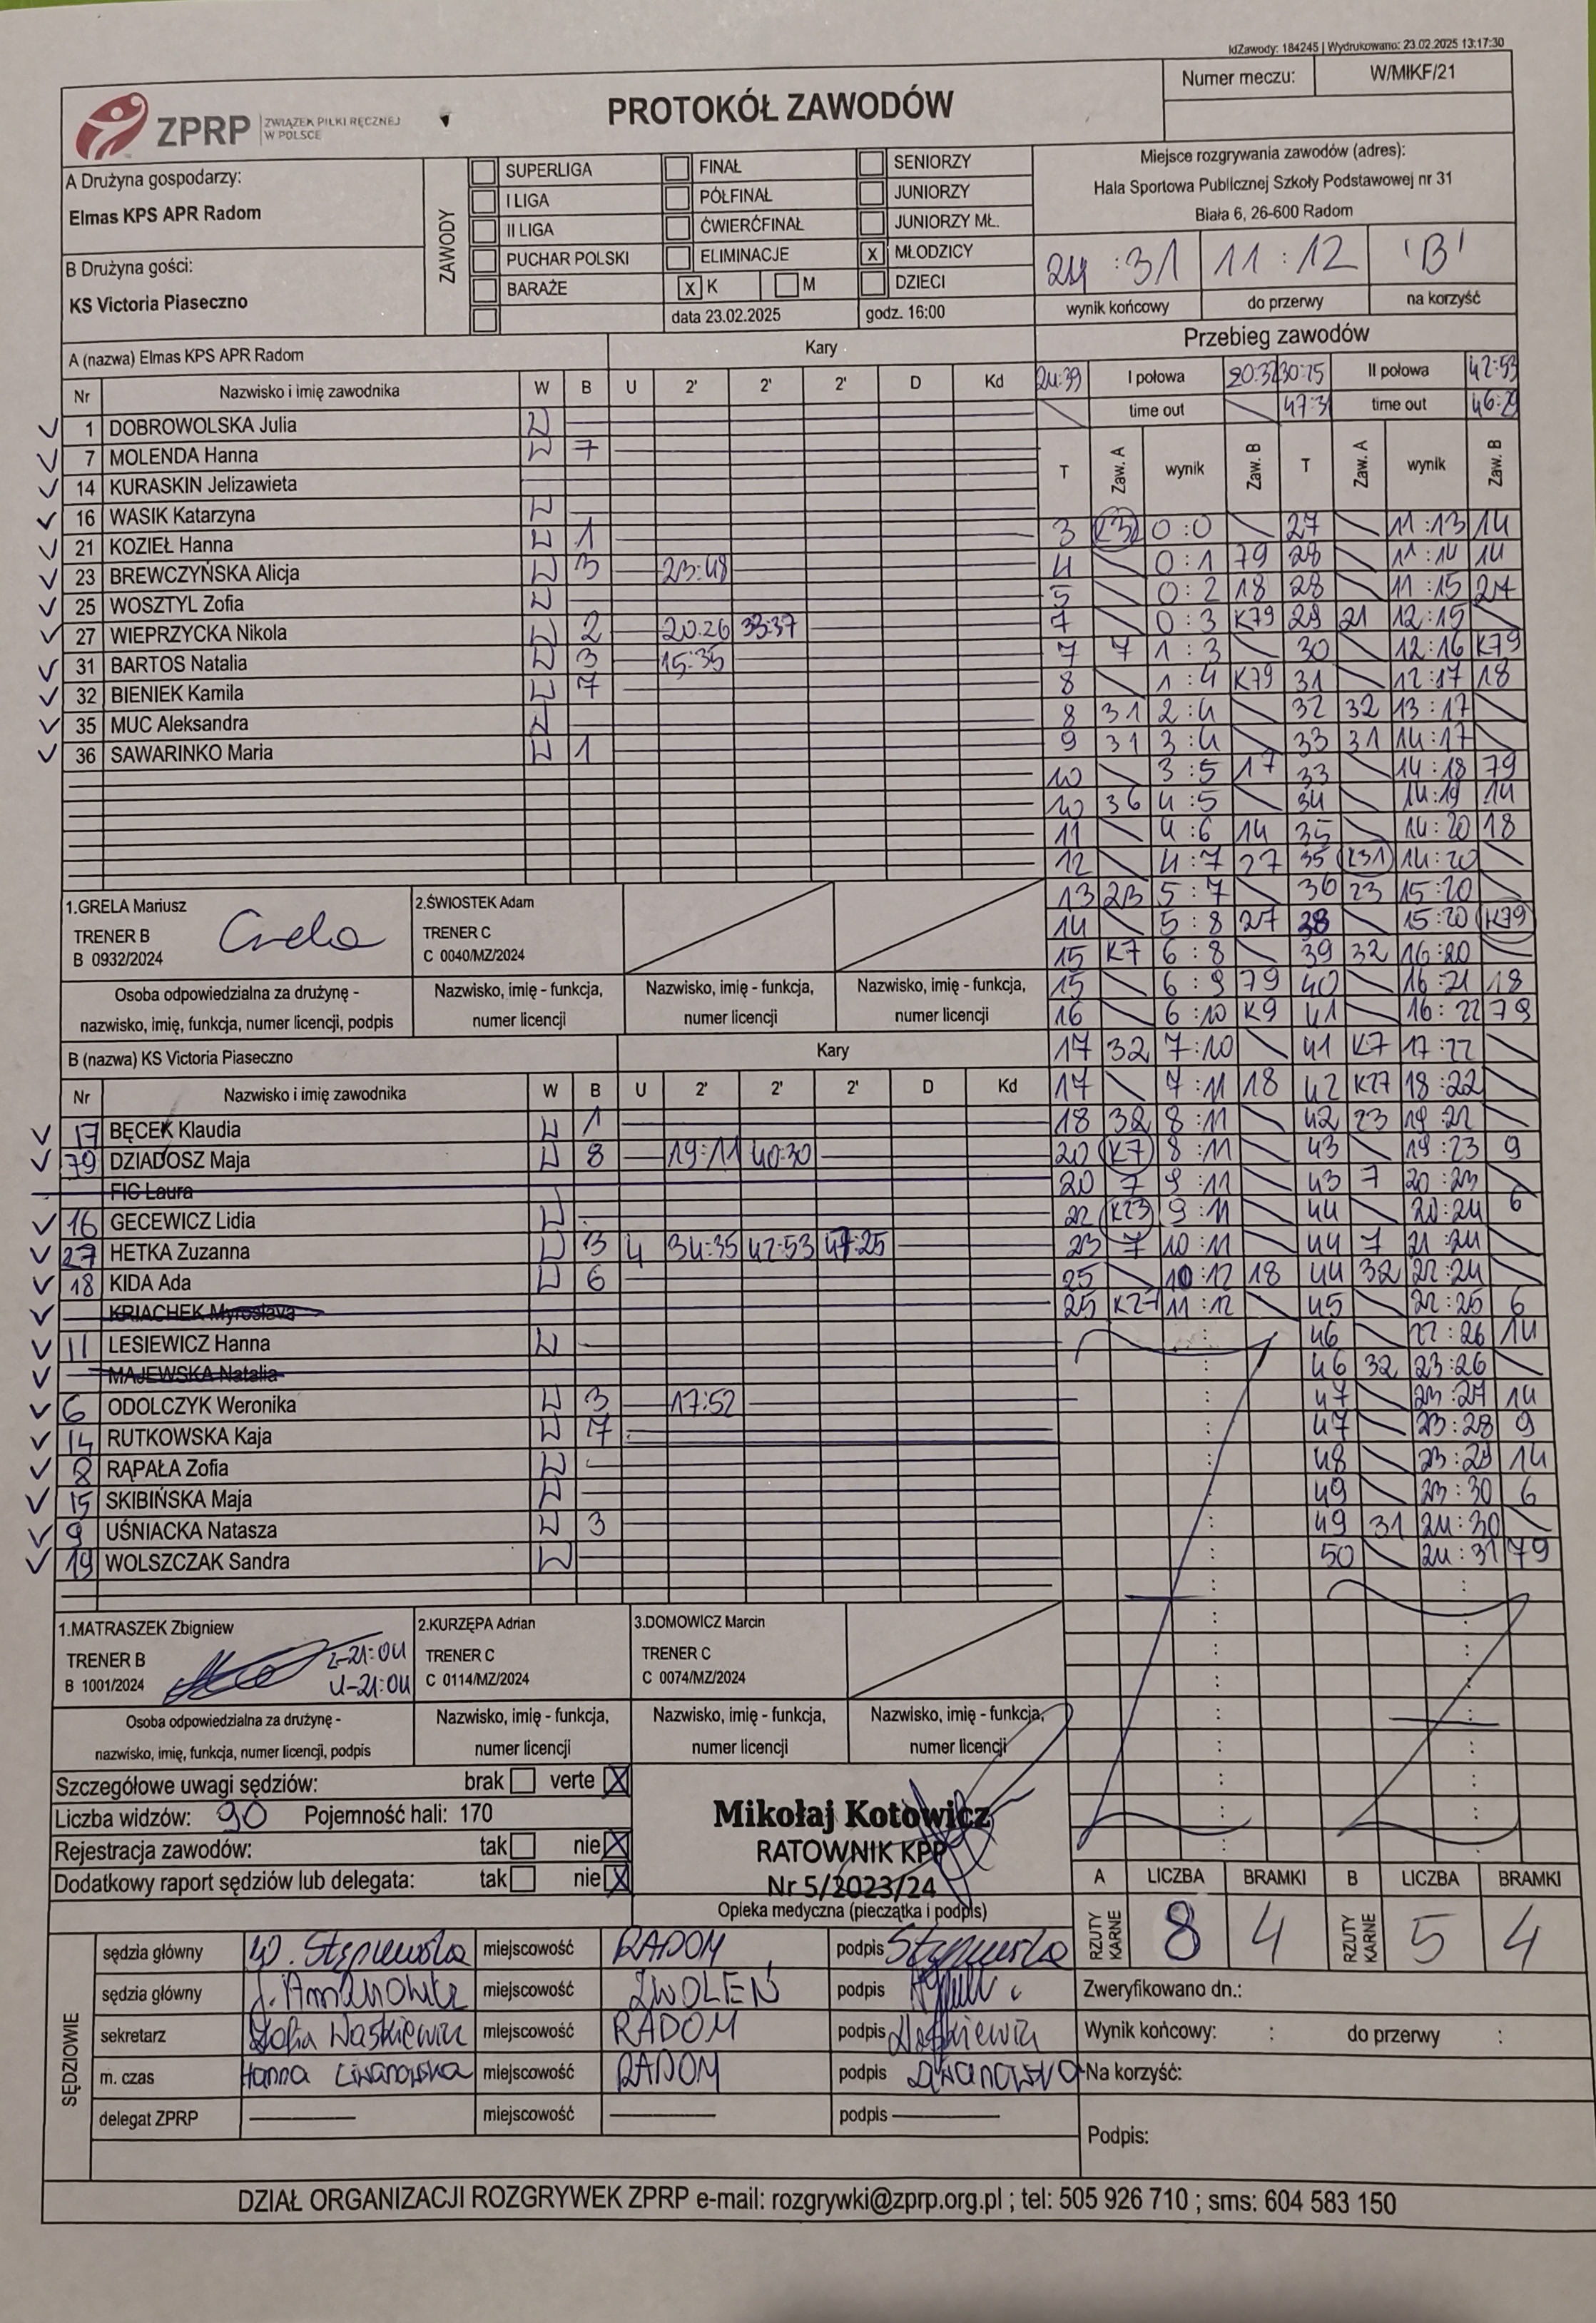 IdZawody: 184245 | Wydrukowano: 23.02.2025 13:17:30
ZPRP ZWIĄZEK PIŁKI RĘCZNEJ W POLSCE
PROTOKÓŁ ZAWODÓW
Numer meczu: W/MIKF/21
A Drużyna gospodarzy:
Elmas KPS APR Radom
B Drużyna gości:
KS Victoria Piaseczno
ZAWODY
SUPERLIGA FINAŁ SENIORZY
I LIGA PÓŁFINAŁ JUNIORZY
II LIGA ĆWIERĆFINAŁ JUNIORZY MŁ.
PUCHAR POLSKI ELIMINACJE X MŁODZICY
BARAŻE X K M DZIECI
data 23.02.2025 godz. 16:00
Miejsce rozgrywania zawodów (adres):
Hala Sportowa Publicznej Szkoły Podstawowej nr 31
Biała 6, 26-600 Radom
24 : 31 11 : 12 'B'
wynik końcowy do przerwy na korzyść
A (nazwa) Elmas KPS APR Radom Kary
Nr Nazwisko i imię zawodnika W B U 2' 2' 2' D Kd
1 DOBROWOLSKA Julia W
7 MOLENDA Hanna W 7
14 KURASKIN Jelizawieta
16 WASIK Katarzyna W
21 KOZIEŁ Hanna W 1
23 BREWCZYŃSKA Alicja W 3 23:48
25 WOSZTYL Zofia W
27 WIEPRZYCKA Nikola W 2 20:26 33:37
31 BARTOS Natalia W 3 15:35
32 BIENIEK Kamila W 7
35 MUC Aleksandra W
36 SAWARINKO Maria W 1
1.GRELA Mariusz
TRENER B
B 0932/2024
Grela
2.ŚWIOSTEK Adam
TRENER C
C 0040/MZ/2024
Osoba odpowiedzialna za drużynę -
nazwisko, imię, funkcja, numer licencji, podpis
Nazwisko, imię - funkcja,
numer licencji
Nazwisko, imię - funkcja,
numer licencji
Nazwisko, imię - funkcja,
numer licencji
B (nazwa) KS Victoria Piaseczno Kary
Nr Nazwisko i imię zawodnika W B U 2' 2' 2' D Kd
17 BĘCEK Klaudia W 1
79 DZIADOSZ Maja W 8 19:11 40:30
FIC Laura
16 GECEWICZ Lidia W
27 HETKA Zuzanna W 3 U 34:35 42:53 47:25
18 KIDA Ada W 6
KRIACHEK Myroslava
11 LESIEWICZ Hanna W
MAJEWSKA Natalia
6 ODOLCZYK Weronika W 3 17:52
14 RUTKOWSKA Kaja W 7
8 RĄPAŁA Zofia W
15 SKIBIŃSKA Maja W
9 UŚNIACKA Natasza W 3
19 WOLSZCZAK Sandra W
1.MATRASZEK Zbigniew
TRENER B
B 1001/2024
2-21:04
U-21:04
2.KURZĘPA Adrian
TRENER C
C 0114/MZ/2024
3.DOMOWICZ Marcin
TRENER C
C 0074/MZ/2024
Osoba odpowiedzialna za drużynę -
nazwisko, imię, funkcja, numer licencji, podpis
Nazwisko, imię - funkcja,
numer licencji
Nazwisko, imię - funkcja,
numer licencji
Nazwisko, imię - funkcja,
numer licencji
Przebieg zawodów
24:39 I połowa 20:32 30:25 II połowa 42:53
time out 47:3 time out 46:29
T Zaw. A wynik Zaw. B T Zaw. A wynik Zaw. B
3 K32 0:0 27 11:13 14
4 0:1 79 28 11:14 14
5 0:2 18 28 11:15 27
7 0:3 K79 29 21 12:15
7 7 1:3 30 12:16 K79
8 1:4 K79 31 12:17 18
8 31 2:4 32 32 13:17
9 31 3:4 33 31 14:17
10 3:5 17 33 14:18 79
10 36 4:5 34 14:19 14
11 4:6 14 35 14:20 18
12 4:7 27 35 K31 14:20
13 23 5:7 36 23 15:20
14 5:8 27 38 15:20 K79
15 K7 6:8 39 32 16:20
15 6:9 79 40 16:21 18
16 6:10 K9 41 16:22 79
17 32 7:10 41 K7 17:22
17 7:11 18 42 K27 18:22
18 32 8:11 42 23 19:22
20 K7 8:11 43 19:23 9
20 7 9:11 43 7 20:23
22 K23 9:11 44 20:24 6
23 7 10:11 44 7 21:24
25 10:12 18 44 32 22:24
25 K27 11:12 45 22:25 6
46 22:26 14
46 32 23:26
47 23:27 14
47 23:28 9
48 23:29 14
49 23:30 6
49 31 24:30
50 24:31 79
Szczegółowe uwagi sędziów: brak verte X
Liczba widzów: 90 Pojemność hali: 170
Rejestracja zawodów: tak nie X
Dodatkowy raport sędziów lub delegata: tak nie X
Mikołaj Kotowicz
RATOWNIK KPP
Nr 5/2023/24
Opieka medyczna (pieczątka i podpis)
A LICZBA BRAMKI B LICZBA BRAMKI
RZUTY KARNE 8 4 RZUTY KARNE 5 4
SĘDZIOWIE
sędzia główny miejscowość RADOM podpis
sędzia główny miejscowość ZWOLEŃ podpis
sekretarz Zofia Waśkiewicz miejscowość RADOM podpis Waśkiewicz
m. czas Hanna Liwanowska miejscowość RADOM podpis Liwanowska
delegat ZPRP miejscowość podpis
Zweryfikowano dn.:
Wynik końcowy: : do przerwy :
Na korzyść:
Podpis:
DZIAŁ ORGANIZACJI ROZGRYWEK ZPRP e-mail: rozgrywki@zprp.org.pl ; tel: 505 926 710 ; sms: 604 583 150